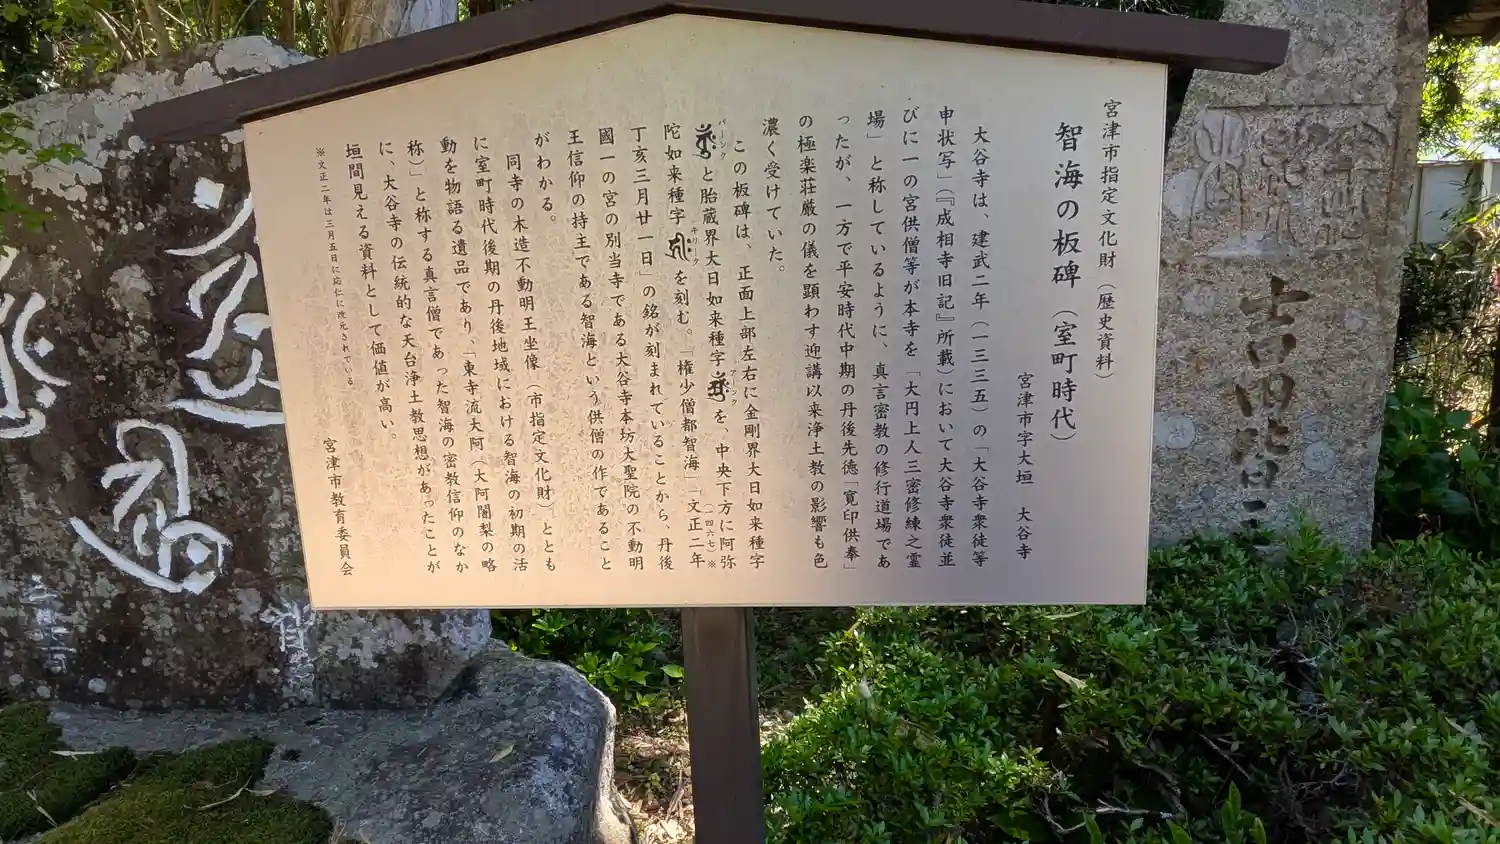 宮津市指定文化財(歴史資料)
智海の板碑(室町時代)
宮津市字大垣 大谷寺
大谷寺は、建武二年(一三三五)の「大谷寺衆徒等
申状写」(『成相寺旧記』所載)において大谷寺衆徒並
びに一の宮供僧等が本寺を「大円上人三密修練之霊
場」と称しているように、真言密教の修行道場であ
ったが、一方で平安時代中期の丹後先徳「寛印供奉」
の極楽荘厳の儀を顕わす迎講以来浄土教の影響も色
濃く受けていた。
この板碑は、正面上部左右に金剛界大日如来種字
バーンク と胎蔵界大日如来種字 アーンク を、中央下方に阿弥
陀如来種字 キリーク を刻む。「権少僧都智海」「文正二年(一四六七)※
丁亥三月廿一日」の銘が刻まれていることから、丹後
國一の宮の別当寺である大谷寺本坊大聖院の不動明
王信仰の持主である智海という供僧の作であること
がわかる。
同寺の木造不動明王坐像(市指定文化財)ととも
に室町時代後期の丹後地域における智海の初期の活
動を物語る遺品であり、「東寺流大阿(大阿闍梨の略
称)」と称する真言僧であった智海の密教信仰のなか
に、大谷寺の伝統的な天台浄土教思想があったことが
垣間見える資料として価値が高い。
※文正二年は三月五日に応仁に改元されている。
宮津市教育委員会